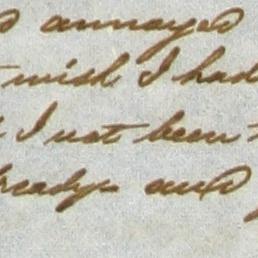 annoyed
wish I had
I not been
ready and